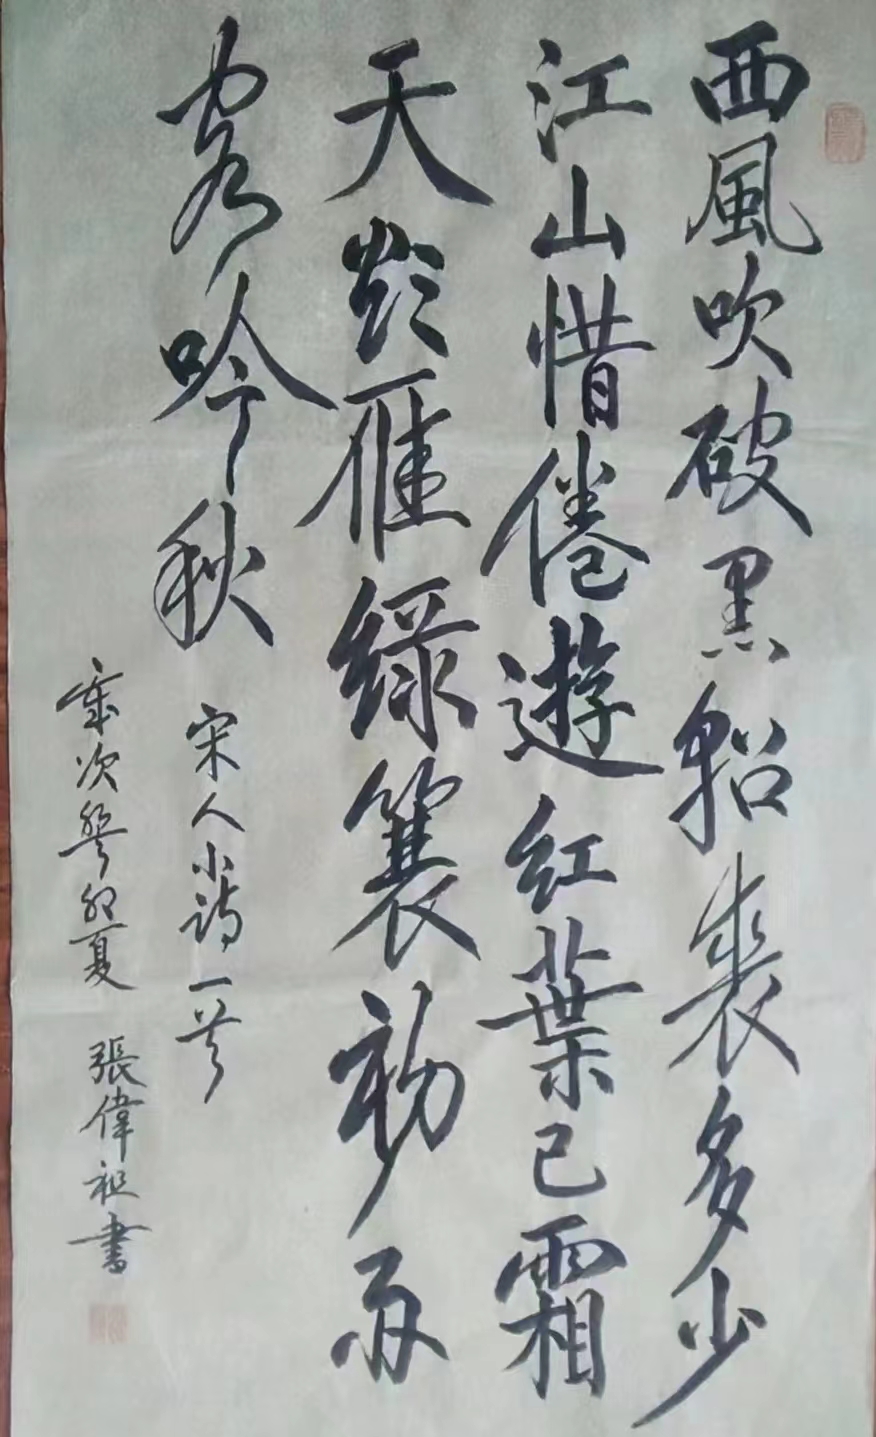 西風吹破黑貂裘多少
江山惜倦遊紅葉已霜
天欲雁綠簑初雨
客吟秋
宋人小詩一首
歲次癸卯夏 張偉祖書